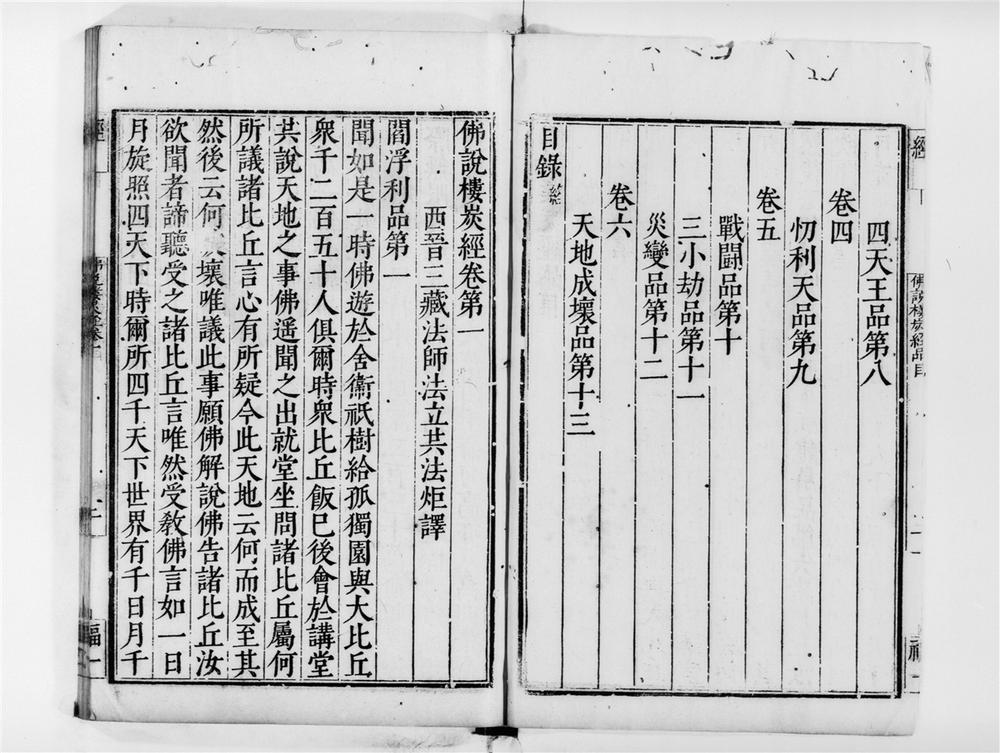 經
佛說樓炭經品目
四天王品第八
卷四
忉利天品第九
卷五
戰鬪品第十
三小劫品第十一
災變品第十二
卷六
天地成壞品第十三
目錄終
佛說樓炭經卷第一
西晉三藏法師法立共法炬譯
閻浮利品第一
聞如是一時佛遊於舍衞祇樹給孤獨園與大比丘
衆千二百五十人俱爾時衆比丘飯已後會於講堂
共說天地之事佛遙聞之出就堂坐問諸比丘屬何
所議諸比丘言心有所疑今此天地云何而成至其
然後云何壞唯議此事願佛解說佛告諸比丘汝
欲聞者諦聽受之諸比丘言唯然受敎佛言如一日
月旋照四天下時爾所四千天下世界有千日月千
經
福一